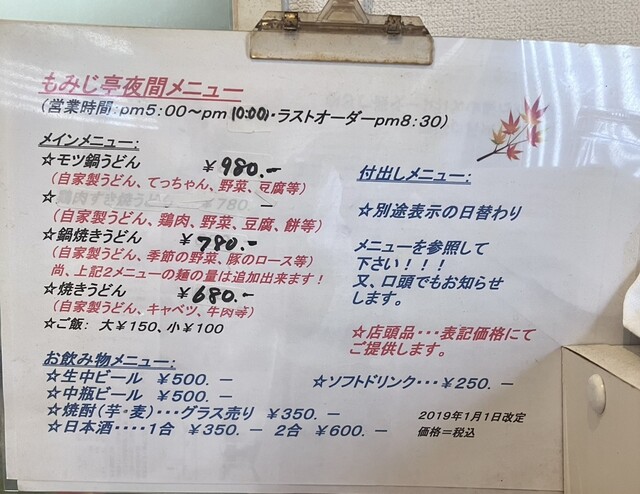 もみじ亭夜間メニュー
(営業時間:pm5:00〜pm10:00)・ラストオーダーpm8:30)
メインメニュー:
☆モツ鍋うどん ￥980.-
(自家製うどん、てっちゃん、野菜、豆腐等)
☆鶏肉すき焼うどん ￥780 -
(自家製うどん、鶏肉、野菜、豆腐、餅等)
☆鍋焼きうどん ￥780.-
(自家製うどん、季節の野菜、豚のロース等)
尚、上記2メニューの麺の量は追加出来ます!
☆焼きうどん ￥680.-
(自家製うどん、キャベツ、牛肉等)
☆ご飯: 大￥150、小￥100
付出しメニュー:
☆別途表示の日替わり
メニューを参照して
下さい!!!
又、口頭でもお知らせ
します。
☆店頭品・・・表記価格にて
ご提供します。
お飲み物メニュー:
☆生中ビール ￥500.-
☆中瓶ビール ￥500.-
☆焼酎(芋・麦)・・・グラス売り ￥350.-
☆日本酒・・・・1合 ￥350.- 2合 ￥600.-
☆ソフトドリンク・・・￥250.-
2019年1月1日改定
価格=税込